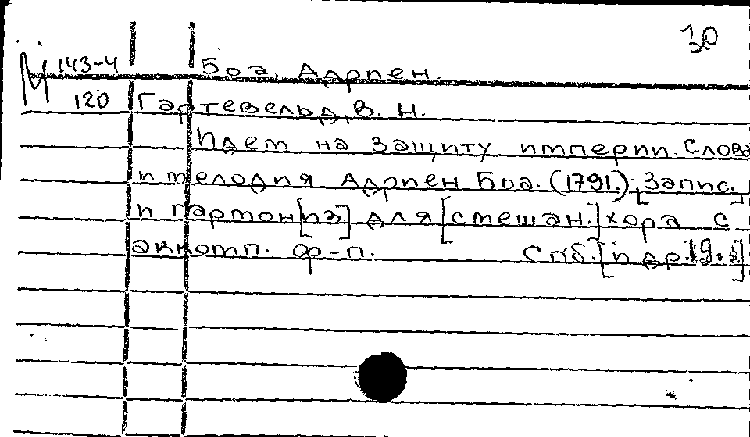 30
М 143-4 Боа, Адриен.
120 Гартевельд, В. Н.
Идем на защиту империи. Слова
и мелодия Адриен Боа. (1791.) [Запис.]
и гармон[из] для [смешан.] хора с
аккомп. ф-п. СПб. [и др.